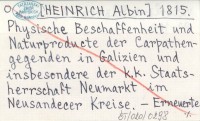 [HEINRICH Albin] 1815.
Physische Beschaffenheit und
Naturproducte der Carpathen-
gegenden in Galizien und
insbesondere der k.k. Staats-
herrschaft Neumarkt im
Neusandecer Kreise. – Erneuerte